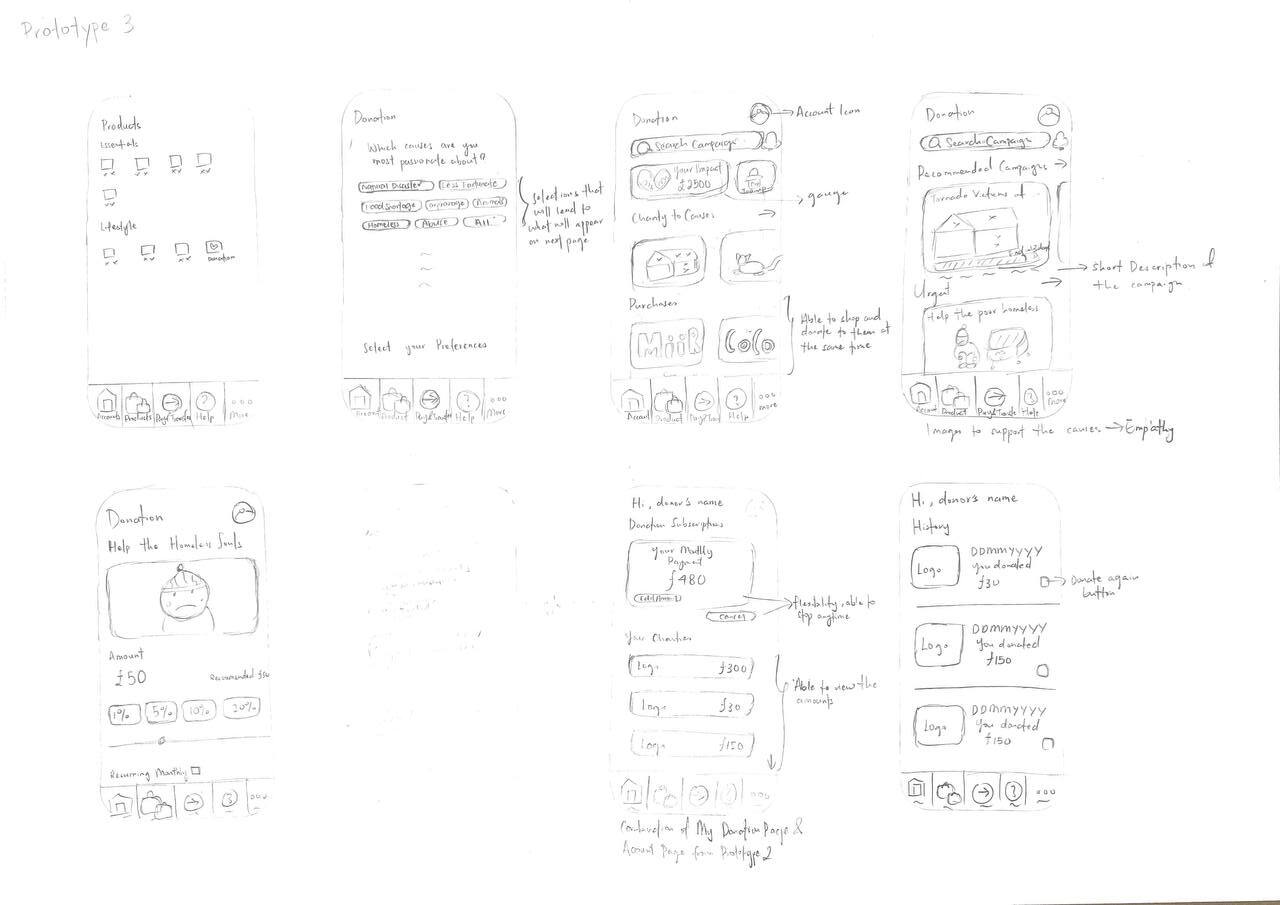 Prototype 3
Products
Essentials
Lifestyle
Donation
Accounts
Products
Pay&Transfer
Help
More
Donation
Which causes are you
most passionate about?
Natural Disaster
Less Fortunate
Food Shortage
Orphanage
Animals
Homeless
Abuse
All
Select your Preferences
Account
Product
Pay&Transfer
Help
More
Selections that
will lead to
what will appear
on next page
Donation
Account Icon
Search Campaign
Your Impact
£2500
gauge
Charity to Causes
Purchases
MiiR
CoCo
Able to shop and
donate to them at
the same time
Account
Product
Pay&Tran
Help
more
Donation
Search Campaign
Recommended Campaigns
Tornado Victims of
Short Description of
the campaign
Urgent
Help the poor homeless
Account
Product
Pay&Transfe
Help
more
Images to support the causes → Empathy
Donation
Help the Homeless Souls
Amount
£50
Recommended £50
1%
5%
10%
20%
Recurring Monthly
Hi, donor's name
Donation Subscriptions
Your Monthly
Payment
£480
Cancel
flexibility, able to
stop anytime
Your Charities
Logo £300
Logo £30
Logo £150
Able to view the
amounts
Combination of My Donation Page &
Account Page from Prototype 2
Hi, donor's name
History
Logo
DDMMYYYY
You donated
£30
Donate again
button
Logo
DDMMYYYY
You donated
£150
Logo
DDMMYYYY
You donated
£150